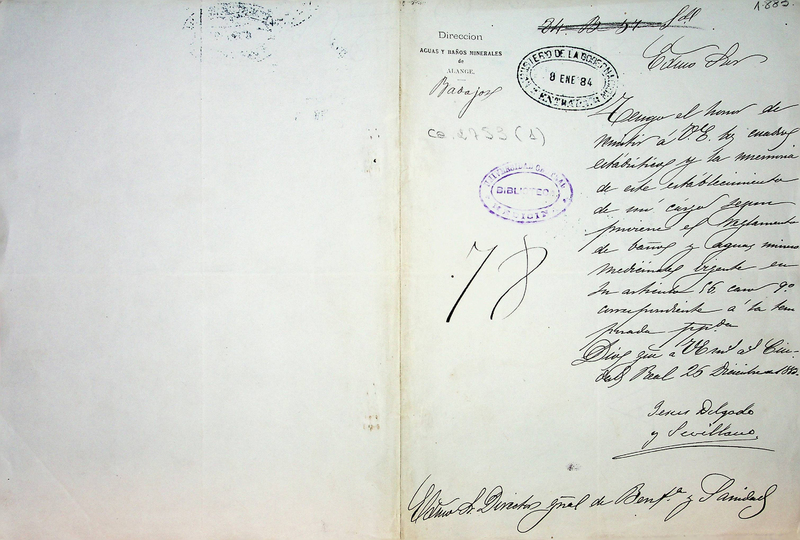 1.883
24-B-54 Sdll
Direccion
AGUAS Y BAÑOS MINERALES
de
ALANGE.
Badajoz
MINISTERIO DE LA GOBERNA
9 ENE 84
ENTRADA
Ca 2753 (1)
BIBLIOTECA
MEDICINA
78
Exmo Sor
Tengo el honor de
remitir á V.E. los cuadros
estadisticos y la memoria
de este establecimiento
de mi cargo segun
previene el Reglamento
de baños y aguas minero
medicinales vigente en
su articulo 56 caso 9º
correspondiente á la tem
porada ppda
Dios gue a VE ms as Ciu-
dad Real 26 Diciembre
Jesus Delgado
y Sevillano
Exmo Sr Director gral de Benfa y Sanidad